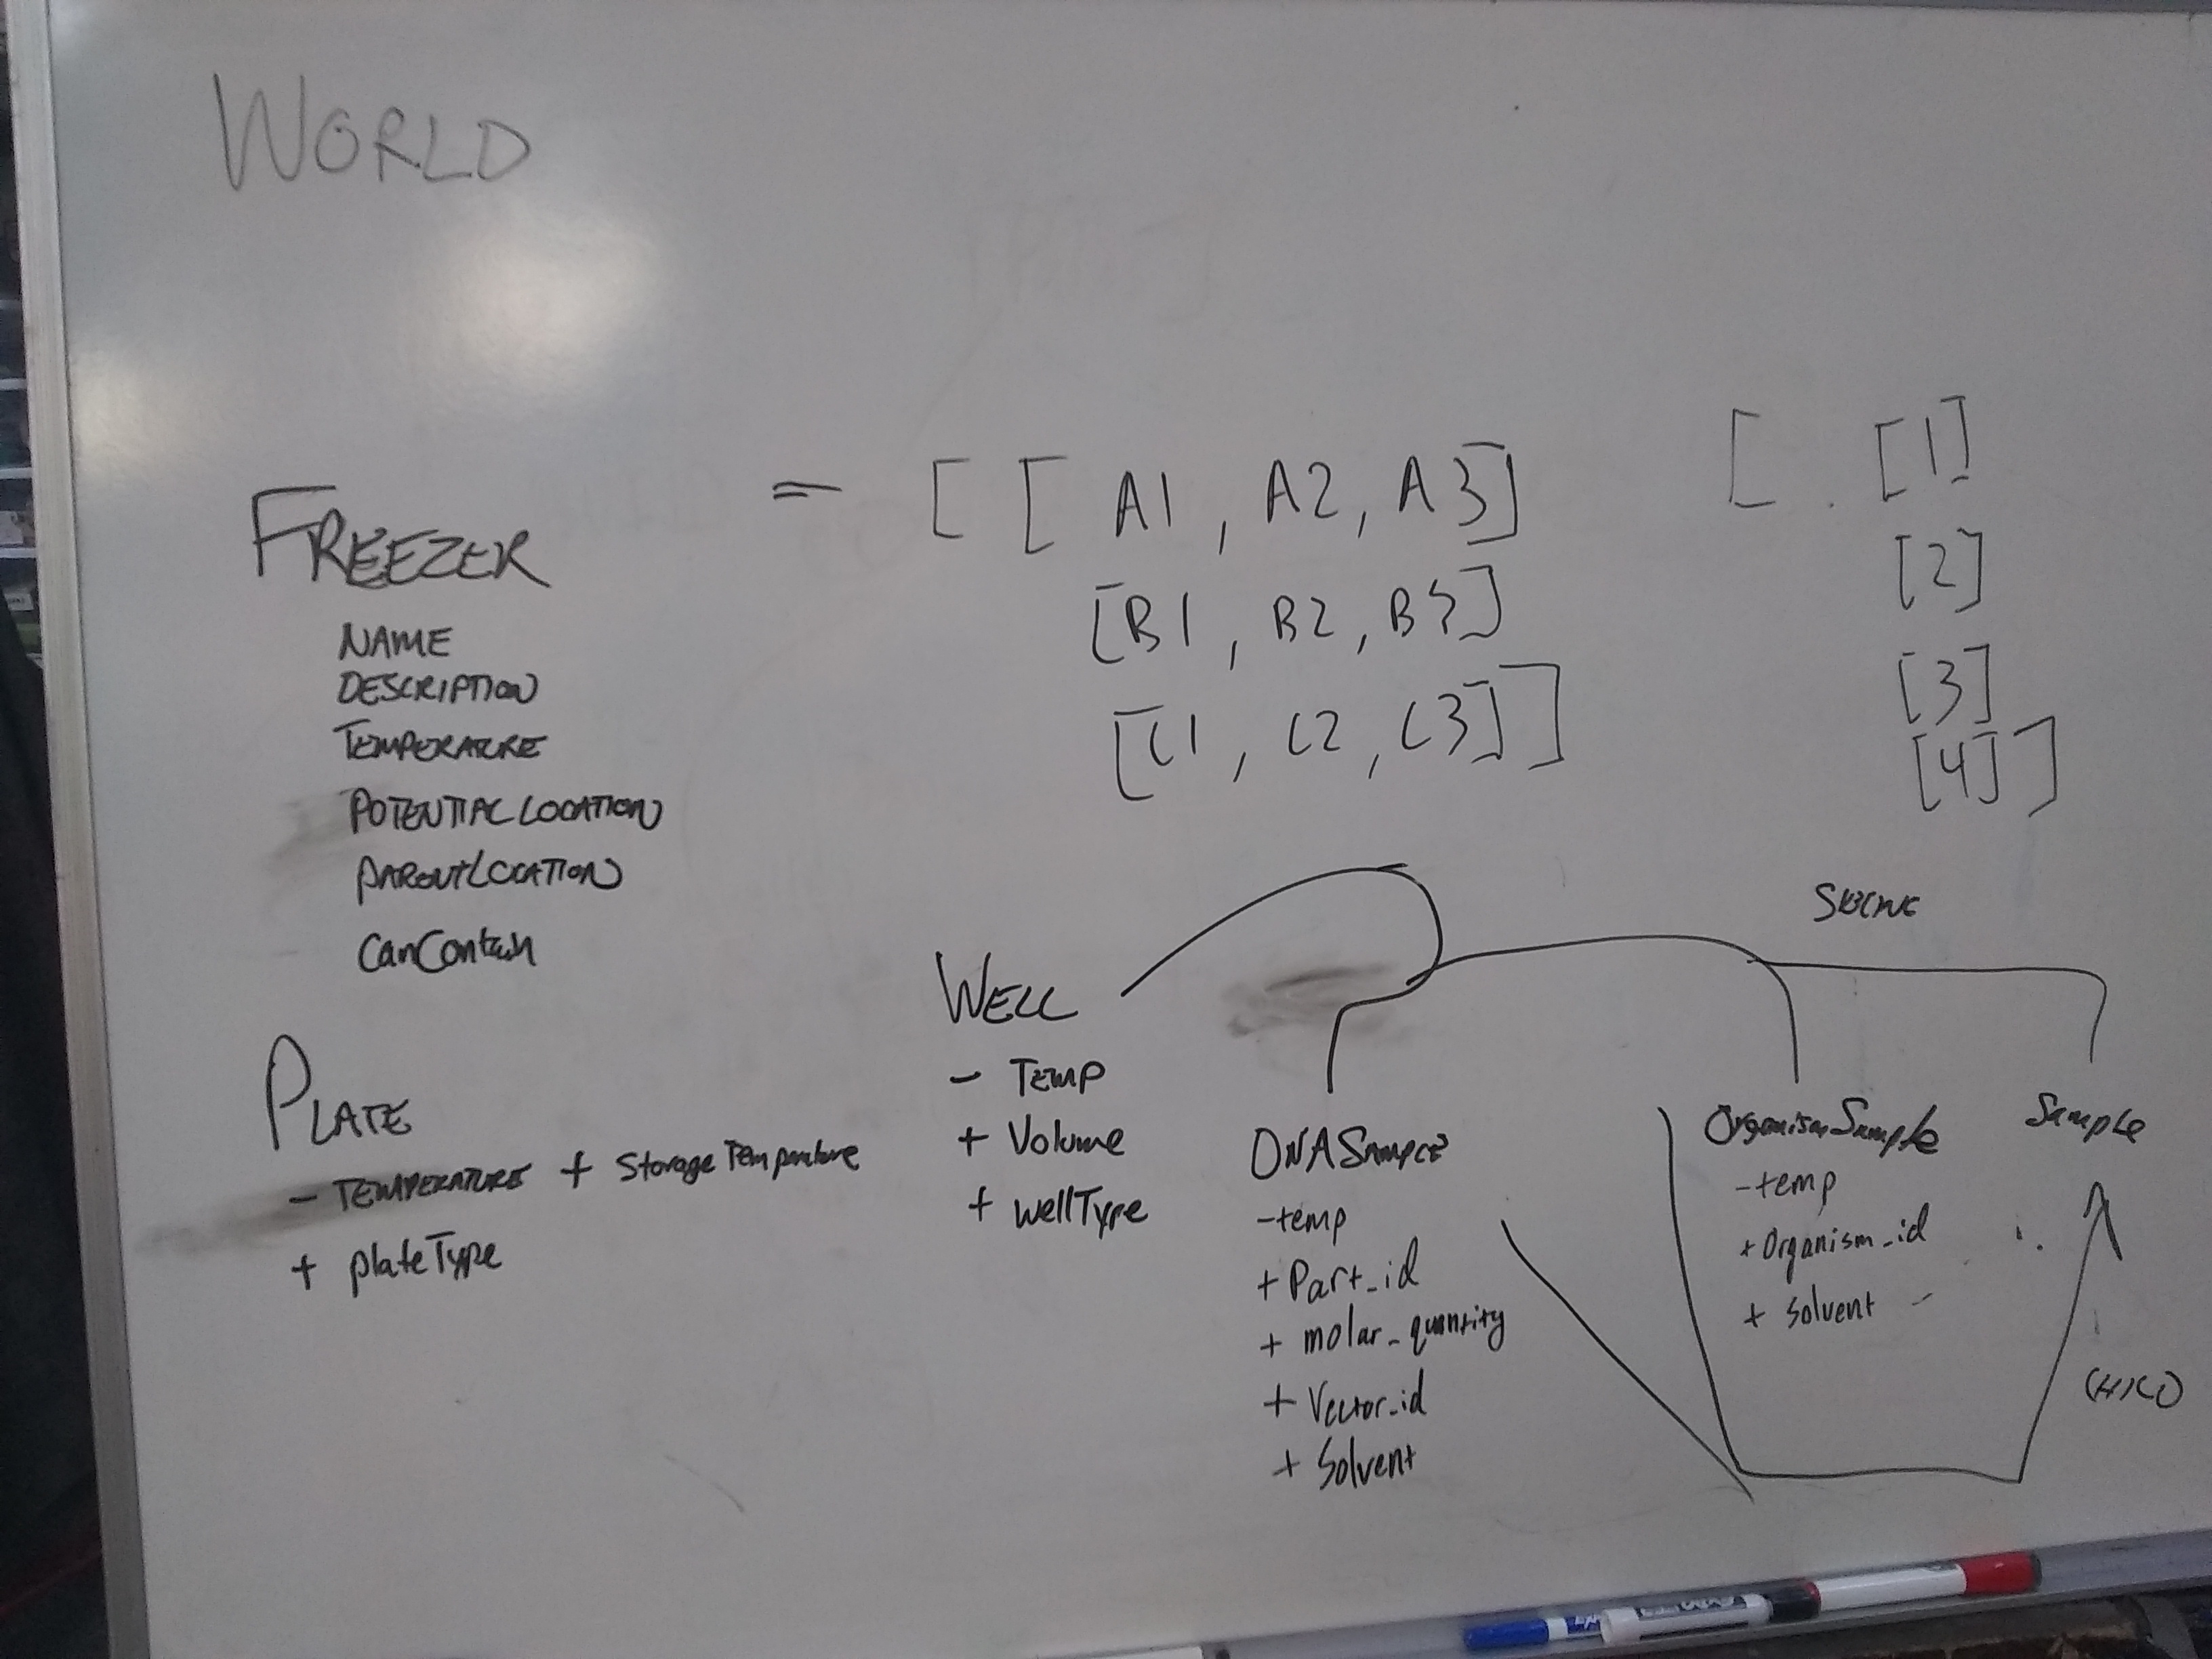 WORLD
FREEZER
NAME
DESCRIPTION
TEMPERATURE
POTENTIAL LOCATION
PARENTLOCATION
CanContain
= [ [ A1, A2, A3]
[B1, B2, B3]
[C1, C2, C3] ]
[ . [1]
[2]
[3]
[4] ]
PLATE
- TEMPERATURE + StorageTemperature
+ plateType
WELL
- TEMP
+ Volume
+ wellType
DNASAMPLE
-temp
+ Part_id
+ molar_quantity
+ Vector_id
+ Solvent
OrganismSample
-temp
+ Organism_id
+ Solvent -
Sample